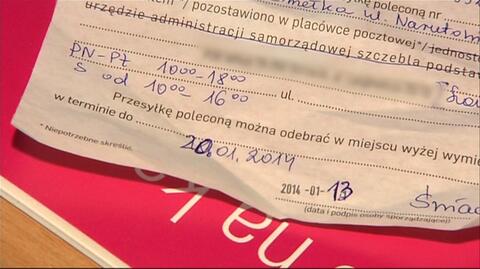 Przesyłkę poleconą nr
** / pozostawiono w placówce pocztowej*/jednostce
urzędzie administracji samorządowej szczebla podsta
PN-PT 10⁰⁰-18⁰⁰
S od 10⁰⁰-16⁰⁰ ul.
Przesyłkę poleconą można odebrać w miejscu wyżej wymie
w terminie do 20.01.2014
* Niepotrzebne skreślić.
2014 -01- 13
(data i podpis osoby sporządzającej)
na k